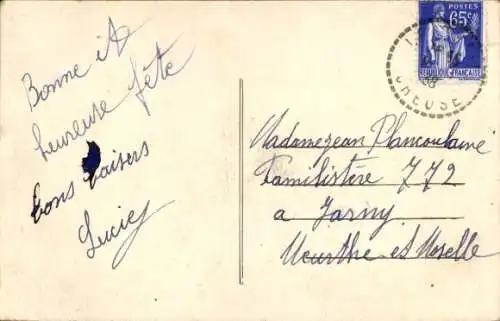 Bonne et
heureuse fête
bons baisers
Lucie
POSTES
65c
REPUBLIQUE FRANÇAISE
CREUSE
38
Madame Jean Plancoulaine
Familistère 772
a Jarny
Meurthe et Moselle